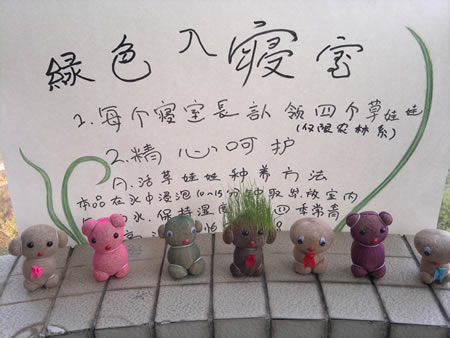 緑色入寝室
1.每个寝室長 领四个草娃娃
(仅限农林系)
2.精心呵护
A.活草娃娃种养方法
本品在水中浸泡10~15分 中取出放室内
水,保持湿 四季常青
怕